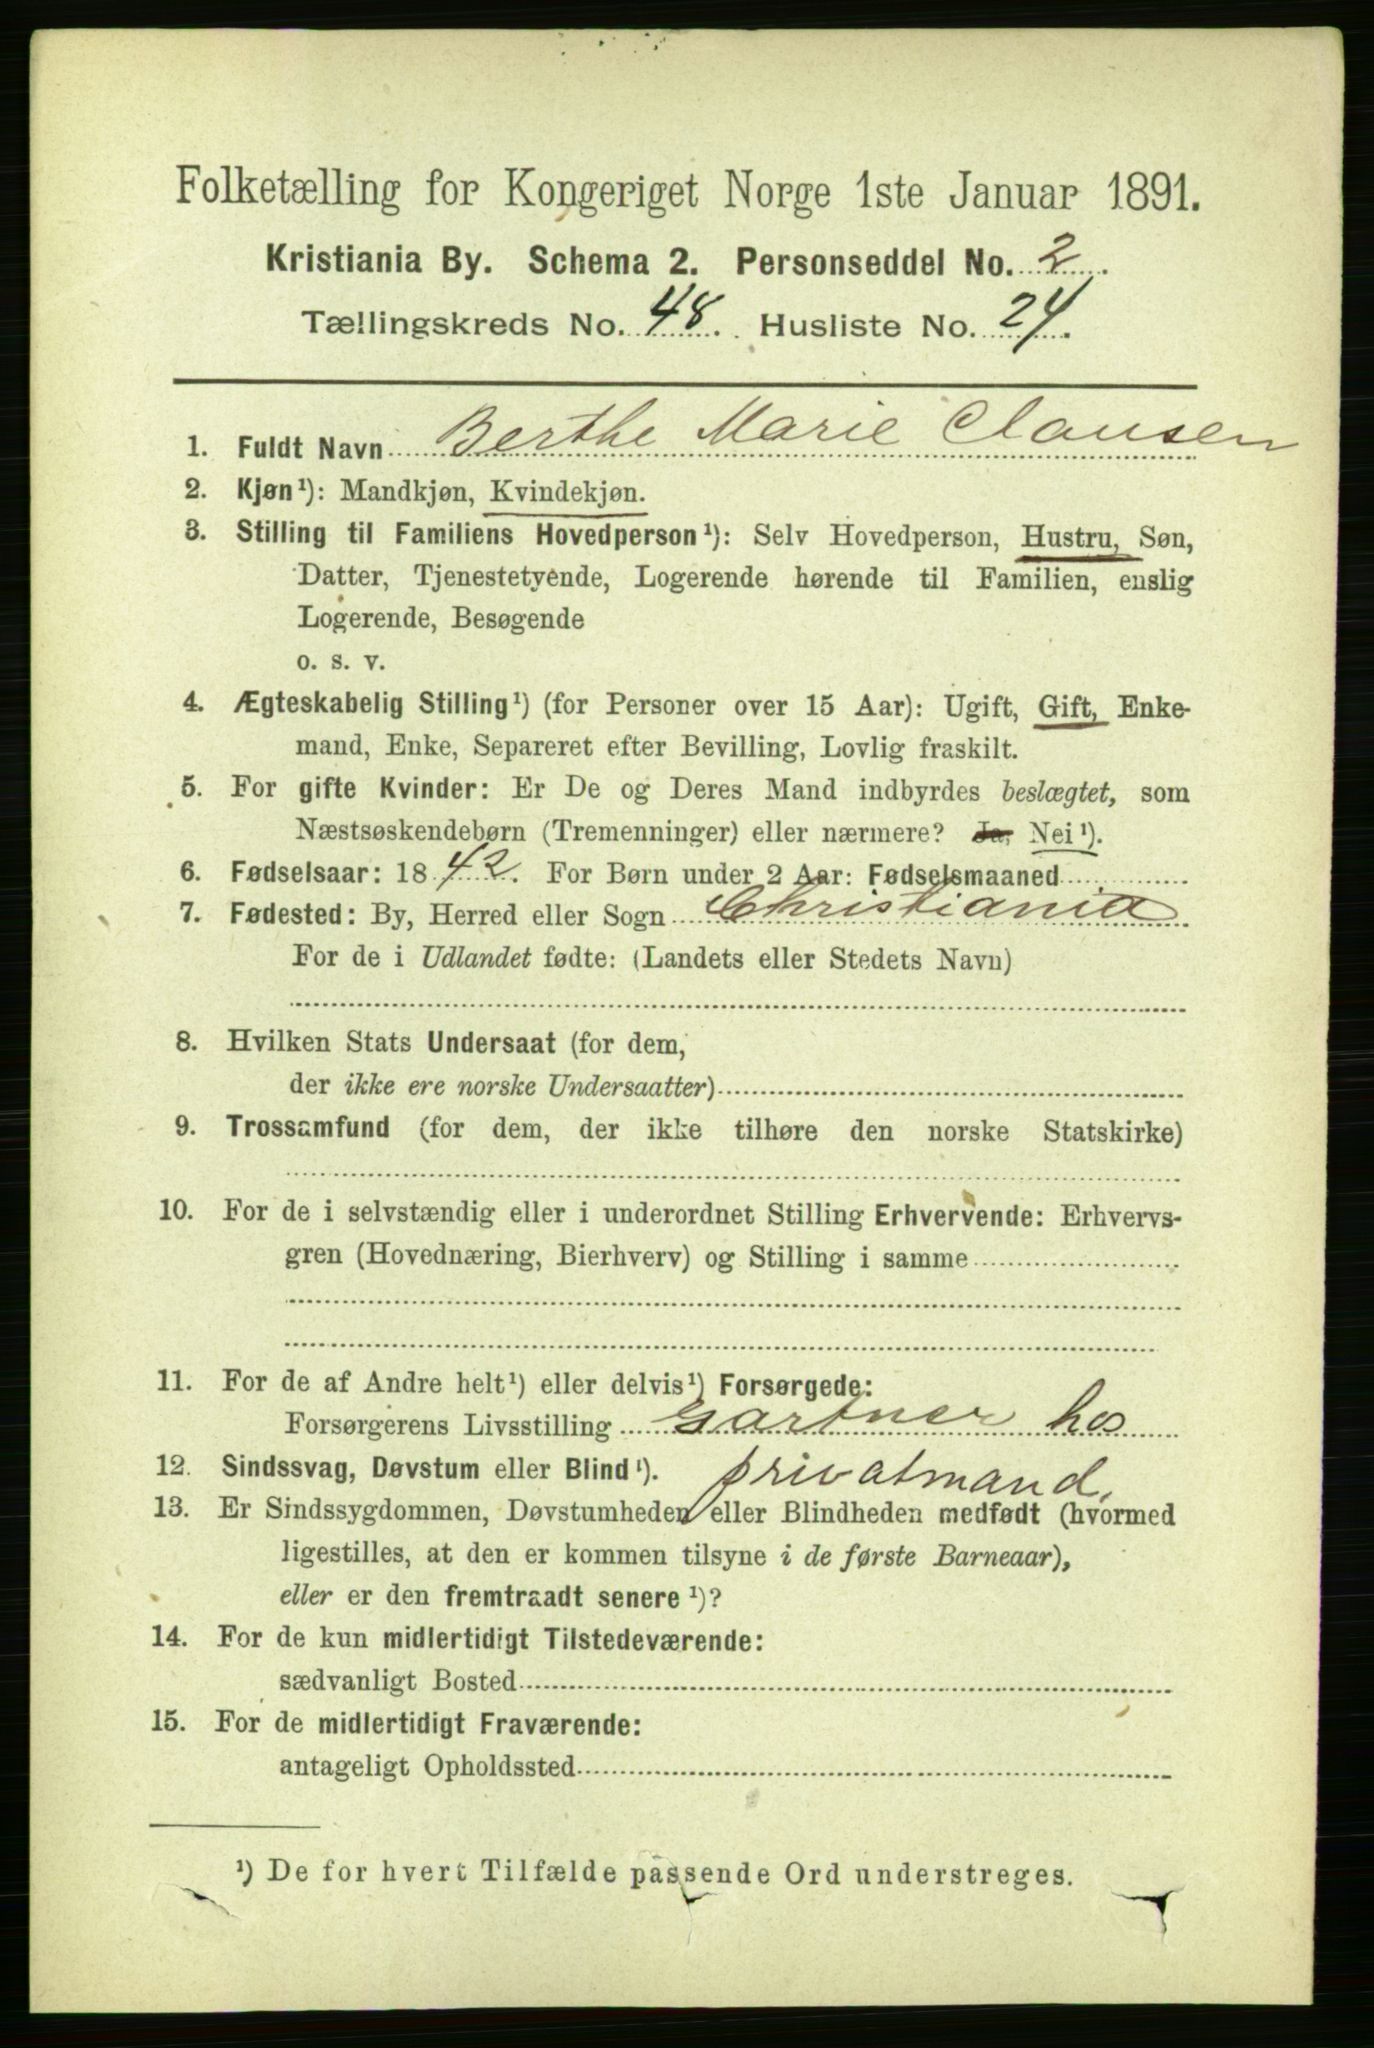 Folketælling for Kongeriget Norge 1ste Januar 1891.
Kristiania By. Schema 2. Personseddel No. 2.
Tællingskreds No. 48. Husliste No. 24.
1. Fuldt Navn Berthe Marie Clausen
2. Kjøn¹): Mandkjøn, Kvindekjøn.
3. Stilling til Familiens Hovedperson¹): Selv Hovedperson, Hustru, Søn,
Datter, Tjenestetyende, Logerende hørende til Familien, enslig
Logerende, Besøgende
o. s. v.
4. Ægteskabelig Stilling¹) (for Personer over 15 Aar): Ugift, Gift, Enke-
mand, Enke, Separeret efter Bevilling, Lovlig fraskilt.
5. For gifte Kvinder: Er De og Deres Mand indbyrdes beslægtet, som
Næstsøskendebørn (Tremenninger) eller nærmere? Ja, Nei¹).
6. Fødselsaar: 1842. For Børn under 2 Aar: Fødselsmaaned
7. Fødested: By, Herred eller Sogn Christiania
For de i Udlandet fødte: (Landets eller Stedets Navn)
8. Hvilken Stats Undersaat (for dem,
der ikke ere norske Undersaatter)
9. Trossamfund (for dem, der ikke tilhøre den norske Statskirke)
10. For de i selvstændig eller i underordnet Stilling Erhvervende: Erhvervs-
gren (Hovednæring, Bierhverv) og Stilling i samme
11. For de af Andre helt¹) eller delvis¹) Forsørgede:
Forsørgerens Livsstilling Gartner hos
12. Sindssvag, Døvstum eller Blind¹). privatmand.
13. Er Sindssygdommen, Døvstumheden eller Blindheden medfødt (hvormed
ligestilles, at den er kommen tilsyne i de første Barneaar),
eller er den fremtraadt senere¹)?
14. For de kun midlertidigt Tilstedeværende:
sædvanligt Bosted
15. For de midlertidigt Fraværende:
antageligt Opholdssted
¹) De for hvert Tilfælde passende Ord understreges.